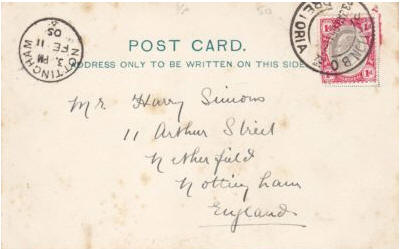 POST CARD.
ADDRESS ONLY TO BE WRITTEN ON THIS SIDE
NOTTINGHAM
3. PM
FE 11
05
PRETORIA
1d 1d
Mr Harry Simons
11 Arthur Street
Netherfield
Nottingham
England